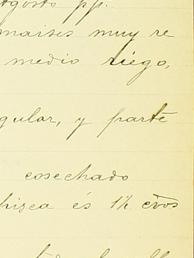 agosto pp.
maises muy re
medio riego,
gular, y parte
cosechado
es 1½